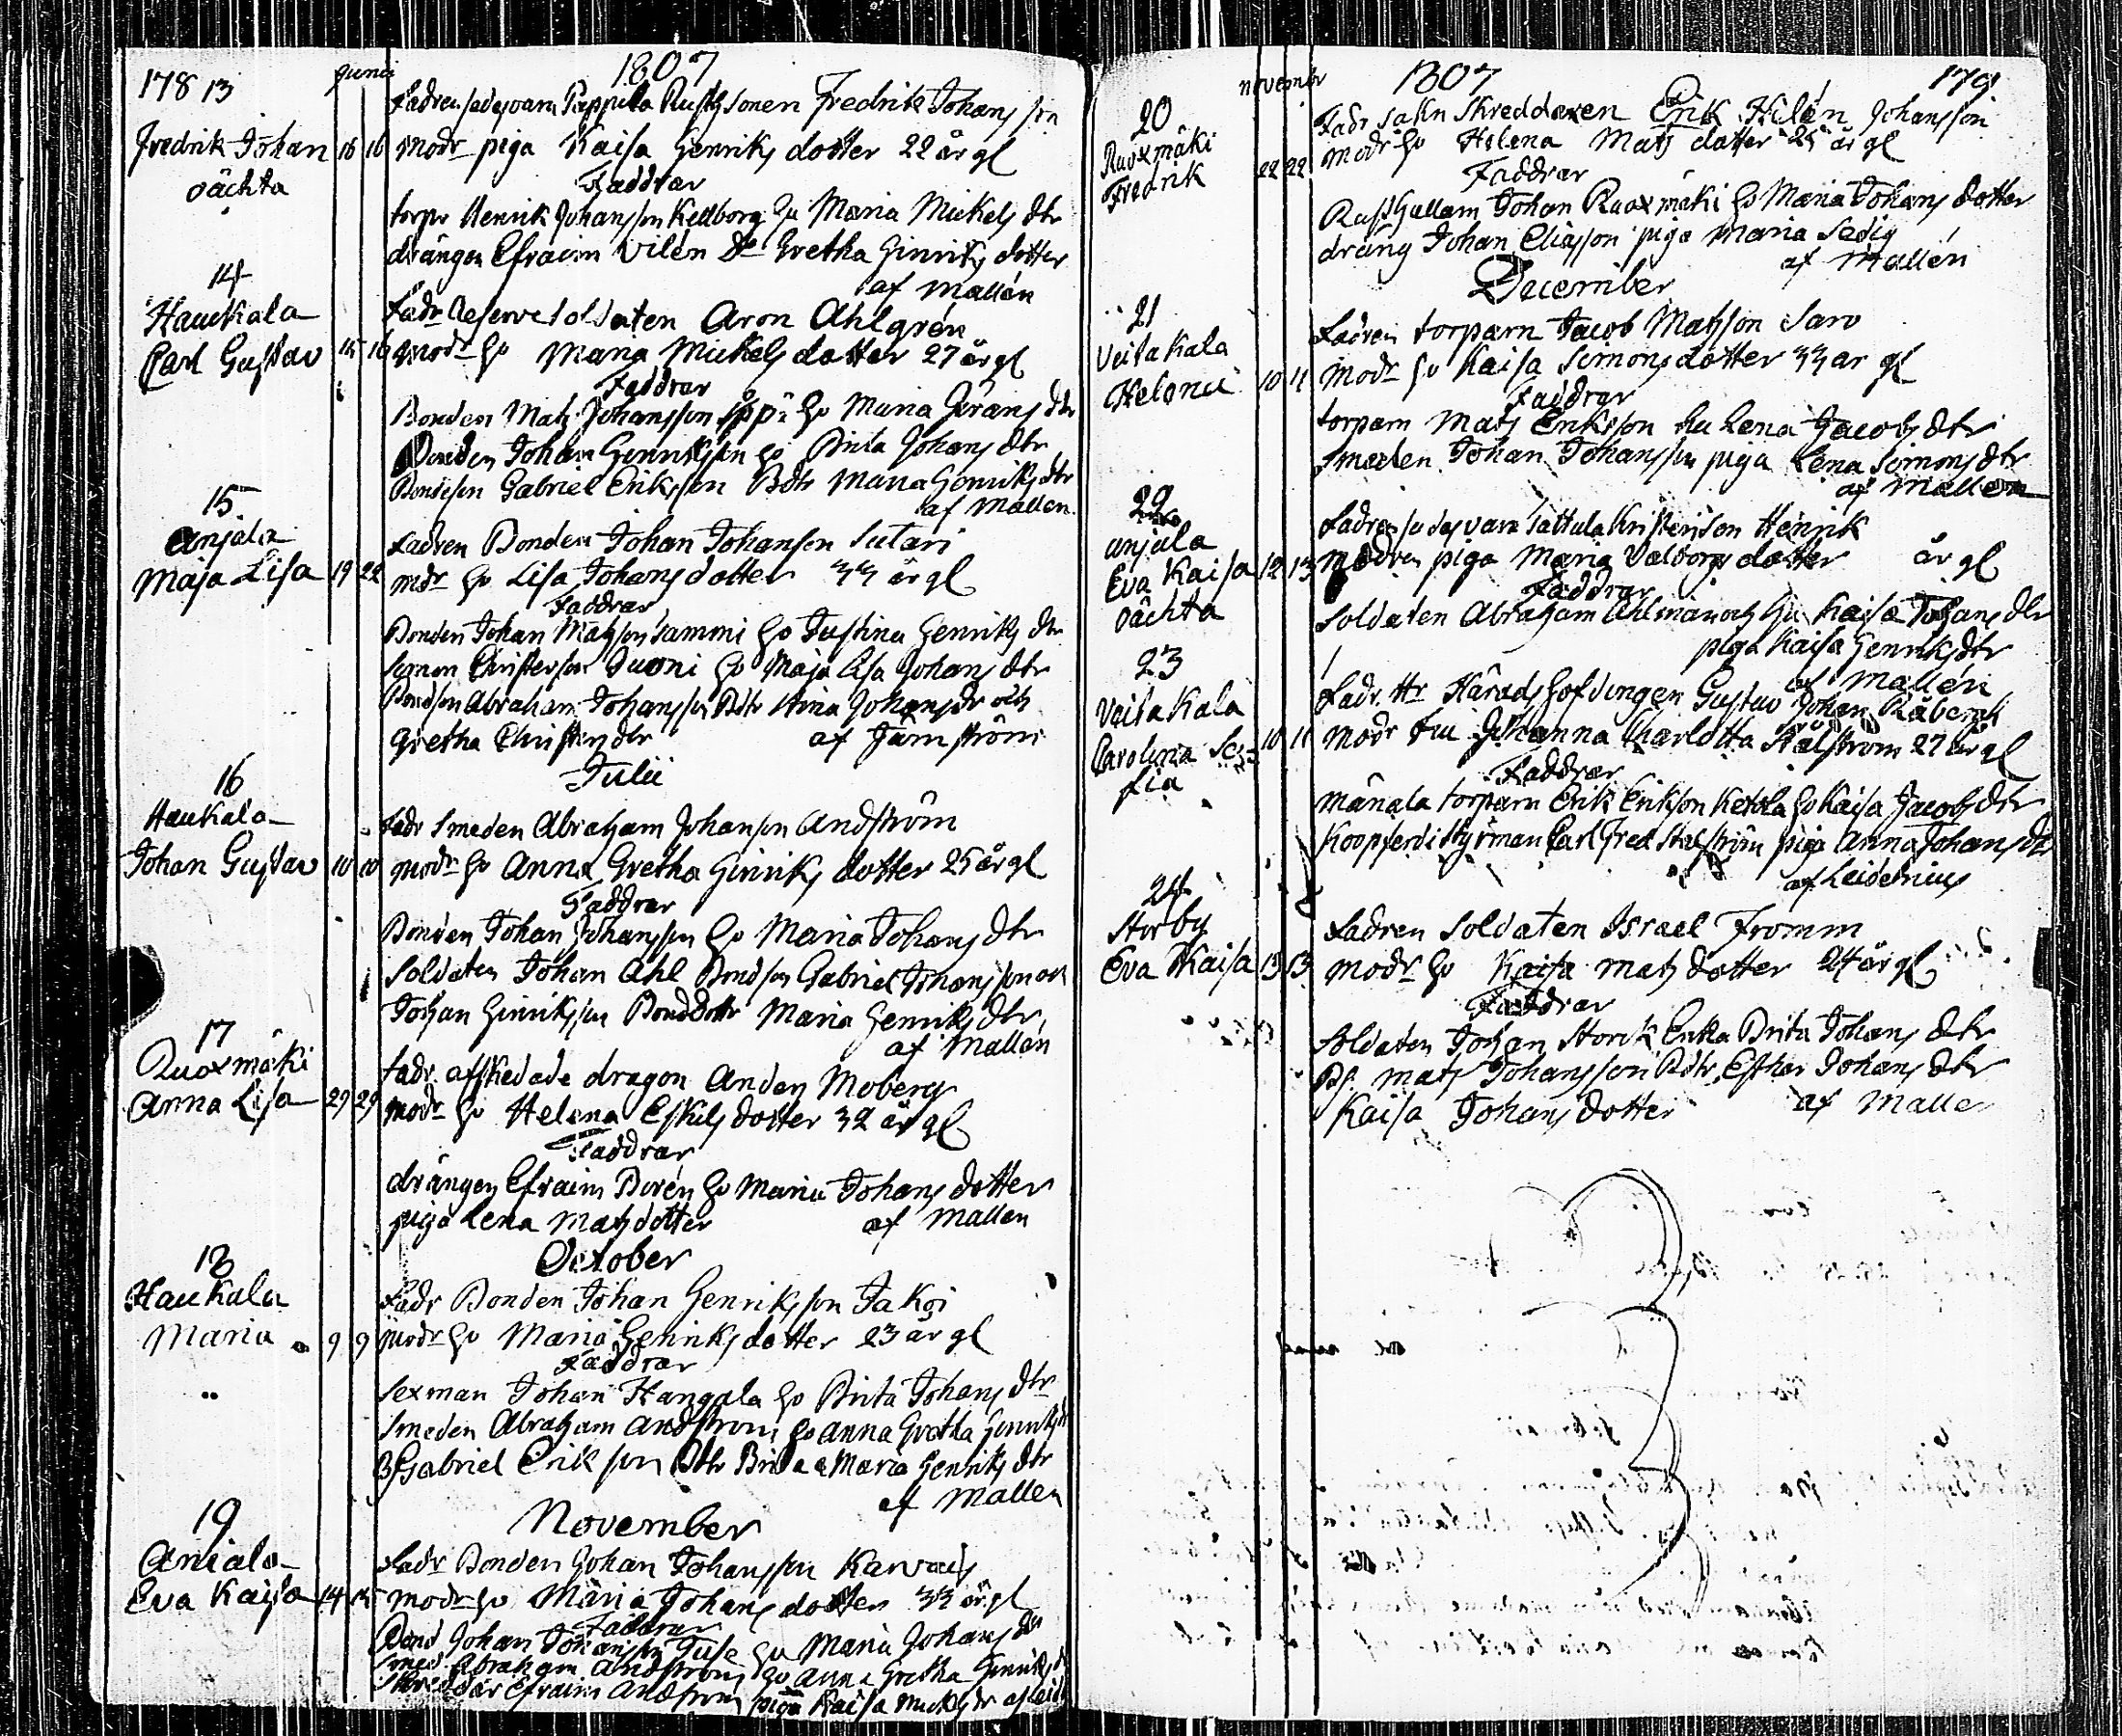 178 13 Junii 1807
Fadren sades vara Pappila Rusth sonen Fredrik Johansson
Fredrik Johan 16 16 modr piga Kaisa Henriks dotter 22 år gl
oächta Faddrar
torpr Henrik Johansson Kellborg hu Maria Mickels dtr
drängen Efraim Vilén Do Gretha Hinriks dotter
af Mallén
14
Haukala Fadr Reserve soldaten Aron Ahlgrén
Carl Gustav 15 16 modr hu Maria Mickels dotter 27 år gl
Faddrar
Bonden Mats Johansson hu Maria Görans dtr
Bonden Johan Henriksson hu Brita Johans dtr
Bondeson Gabriel Eriksson Bdtr Maria Henriks dtr
af Mallen
15
Anjala Fadren Bonden Johan Johanson Sutari
Maja Lisa 19 22 mdr hu Lisa Johans dotter 33 år gl
Faddrar
Bonden Johan Matsson Sammi hu Justina Henriks dtr
Simon Christersson Juoni hu Maja Lisa Johans dtr
Bondson Abraham Johansson Bdtr Stina Johans dr och
Gretha Christers dtr af Järnström
Julii
16
Haukala Fadr Smeden Abraham Johanson Andström
Johan Gustav 10 10 modr hu Anna Gretha Hinriks dotter 25 år gl
Faddrar
Bonden Johan Johansson hu Maria Johans dtr
Soldaten Johan Ahl Bondson Gabriel Johansson och
Johan Hinriksson Bonddottr Maria Henriks dtr
af Mallén
17
Ruoxmäki Fadr afskedade dragon Anders Moberg
Anna Lisa 29 29 modr hu Helena Eskils dotter 32 år gl
Faddrar
drängen Efraim Borén hu Maria Johans dotter
piga Lena Mats dotter af Mallen
October
18
Haukala Fadr Bonden Johan Henriksson Jakoi
Maria 9 9 modr hu Maria Henriks dotter 23 år gl
Faddrar
Sexman Johan Hangala hu Brita Johans dtr
Smeden Abraham Andström hu Anna Gretha Henriks dr
BS Gabriel Erikson Bdtr Brita & Maria Henriks dtr
af Mallén
November
19
Aniala Fadr Bonden Johan Johansson Karvais
Eva Kaisa 14 15 modr hu Maria Johans dotter 33 år gl
Faddrar
Bond Johan Johansson Tuse hu Maria Johans dr
Smed Abraham Andström hu Anna Gretha Henriks d
Skreddar Efraim Andström piga Kaisa Mickels dr af Leid
november 1807 179
20
Ruoxmäki Fadr Sakn Skreddaren Erik Helén Johansson
Fredrik 22 22 modr hu Helena Mats dotter 25 år gl
Faddrar
Rusthållarn Johan Ruoxmäki hu Maria Johans dotter
dräng Johan Eliasson piga Maria Sedig
af Mallén
December
21
Veitakala Fadren torparn Jacob Matsson Sarv
Helena 10 11 modr hu Kaisa Simons dotter 33 år gl
Faddrar
torparn Mats Eriksson hu Lena Jacobs dtr
Smeden Johan Johansson piga Lena Simons dtr
af Mallen
22
Anjala Fadren sades vara Sattula Kristersson Henrik
Eva Kaisa 12 13 modren piga Maria Valborgs dotter år gl
oächta Faddrar
Soldaten Abraham Ahlman och hu Kaisa Johans dtr
piga Kaisa Henriks dtr
af Mallén
23
Veitakala Fadr Hr Häradshöfdingen Gustav Johan Råbergh
Carolina So= 10 11 modr Fru Johanna Charlotta Stålström 27 år gl
fia Faddrar
mänala torparn Erik Erikson Ketola hu Kaisa Jacobs dtr
Koopferdi Styrman Carl Fred Stålström piga Anna Johans dr
af Leidenius
24
Storby Fadren Soldaten Israel Fromm
Eva Kaisa 13 13 modr hu Kaisa Mats dotter 24 år gl
Faddrar
Soldaten Johan Storck Enka Brita Johans dtr
BS. Mats Johansson Bdtr Esther Johans dtr
Kaisa Johans dotter af Malle